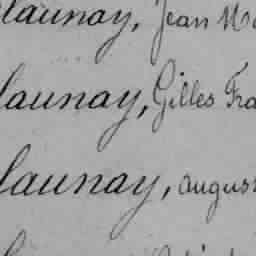 launay, Jean
launay, Gilles Fra
launay, august